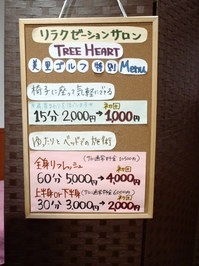 リラクゼーションサロン
TREE HEART
美里ゴルフ 特別 Menu
椅子に座って気軽にできる
初回
15分 2,000円→1,000円
ゆったりとベッドでの施術
全身リフレッシュ
初回
60分 5000円→4,000円
上半身or下半身
初回
30分 3,000円→2,000円